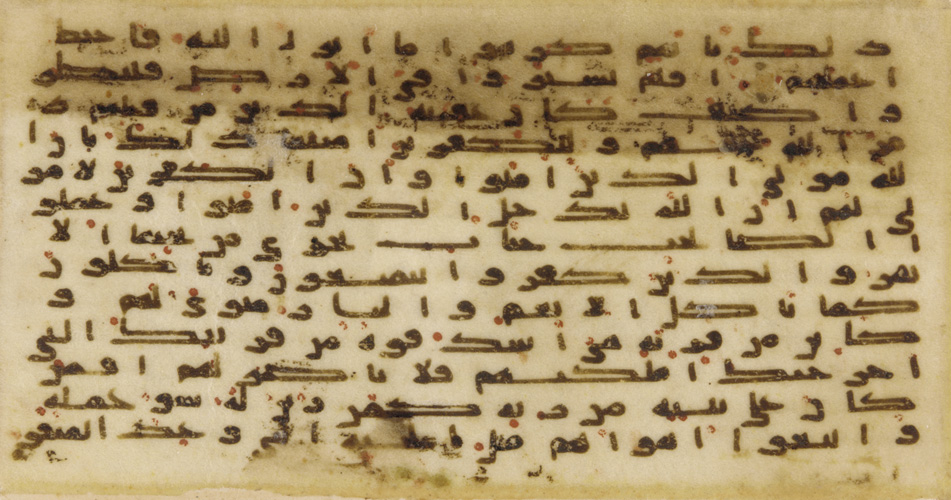 ذلك بانهم كرهوا ما انزل الله فاحبط
اعملهم افلم يسيروا في الارض فينظر
وا كيف كان عقبه الذين من قبلهم د
مر الله عليهم وللكفرين امثلها ذلك بان ا
لله مولى الذين امنوا وان الكفرين لا مو
لى لهم ان الله يدخل الذين امنوا وعملو
ا الصلحت جنت تجري من تحتها الا
نهر والذين كفروا يتمتعون وياكلون
كما تاكل الانعم والنار مثوى لهم و
كاين من قريه هي اشد قوه من قريتك التي
اخرجتك اهلكنهم فلا ناصر لهم افمن
كان على بينه من ربه كمن زين له سو عمله
واتبعوا اهواهم مثل الجنه التي وعد المتقو